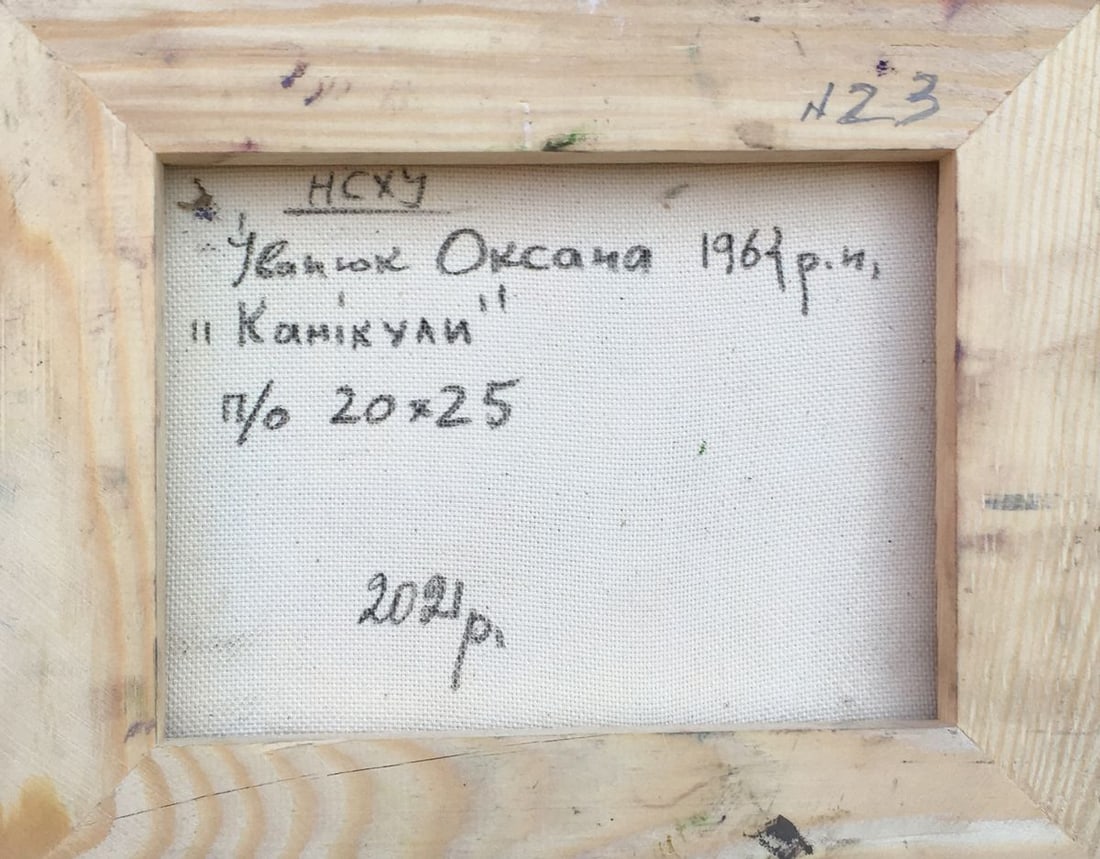 N23
НСХУ
Іванюк Оксана р.н.
"Канікули"
п/о 20×25
2021р.